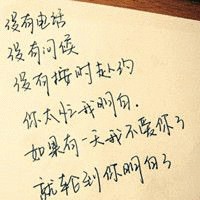 没有电话
没有问候
没有按时赴约
你太忙我明白.
如果有一天我不爱你了
就轮到你明白了